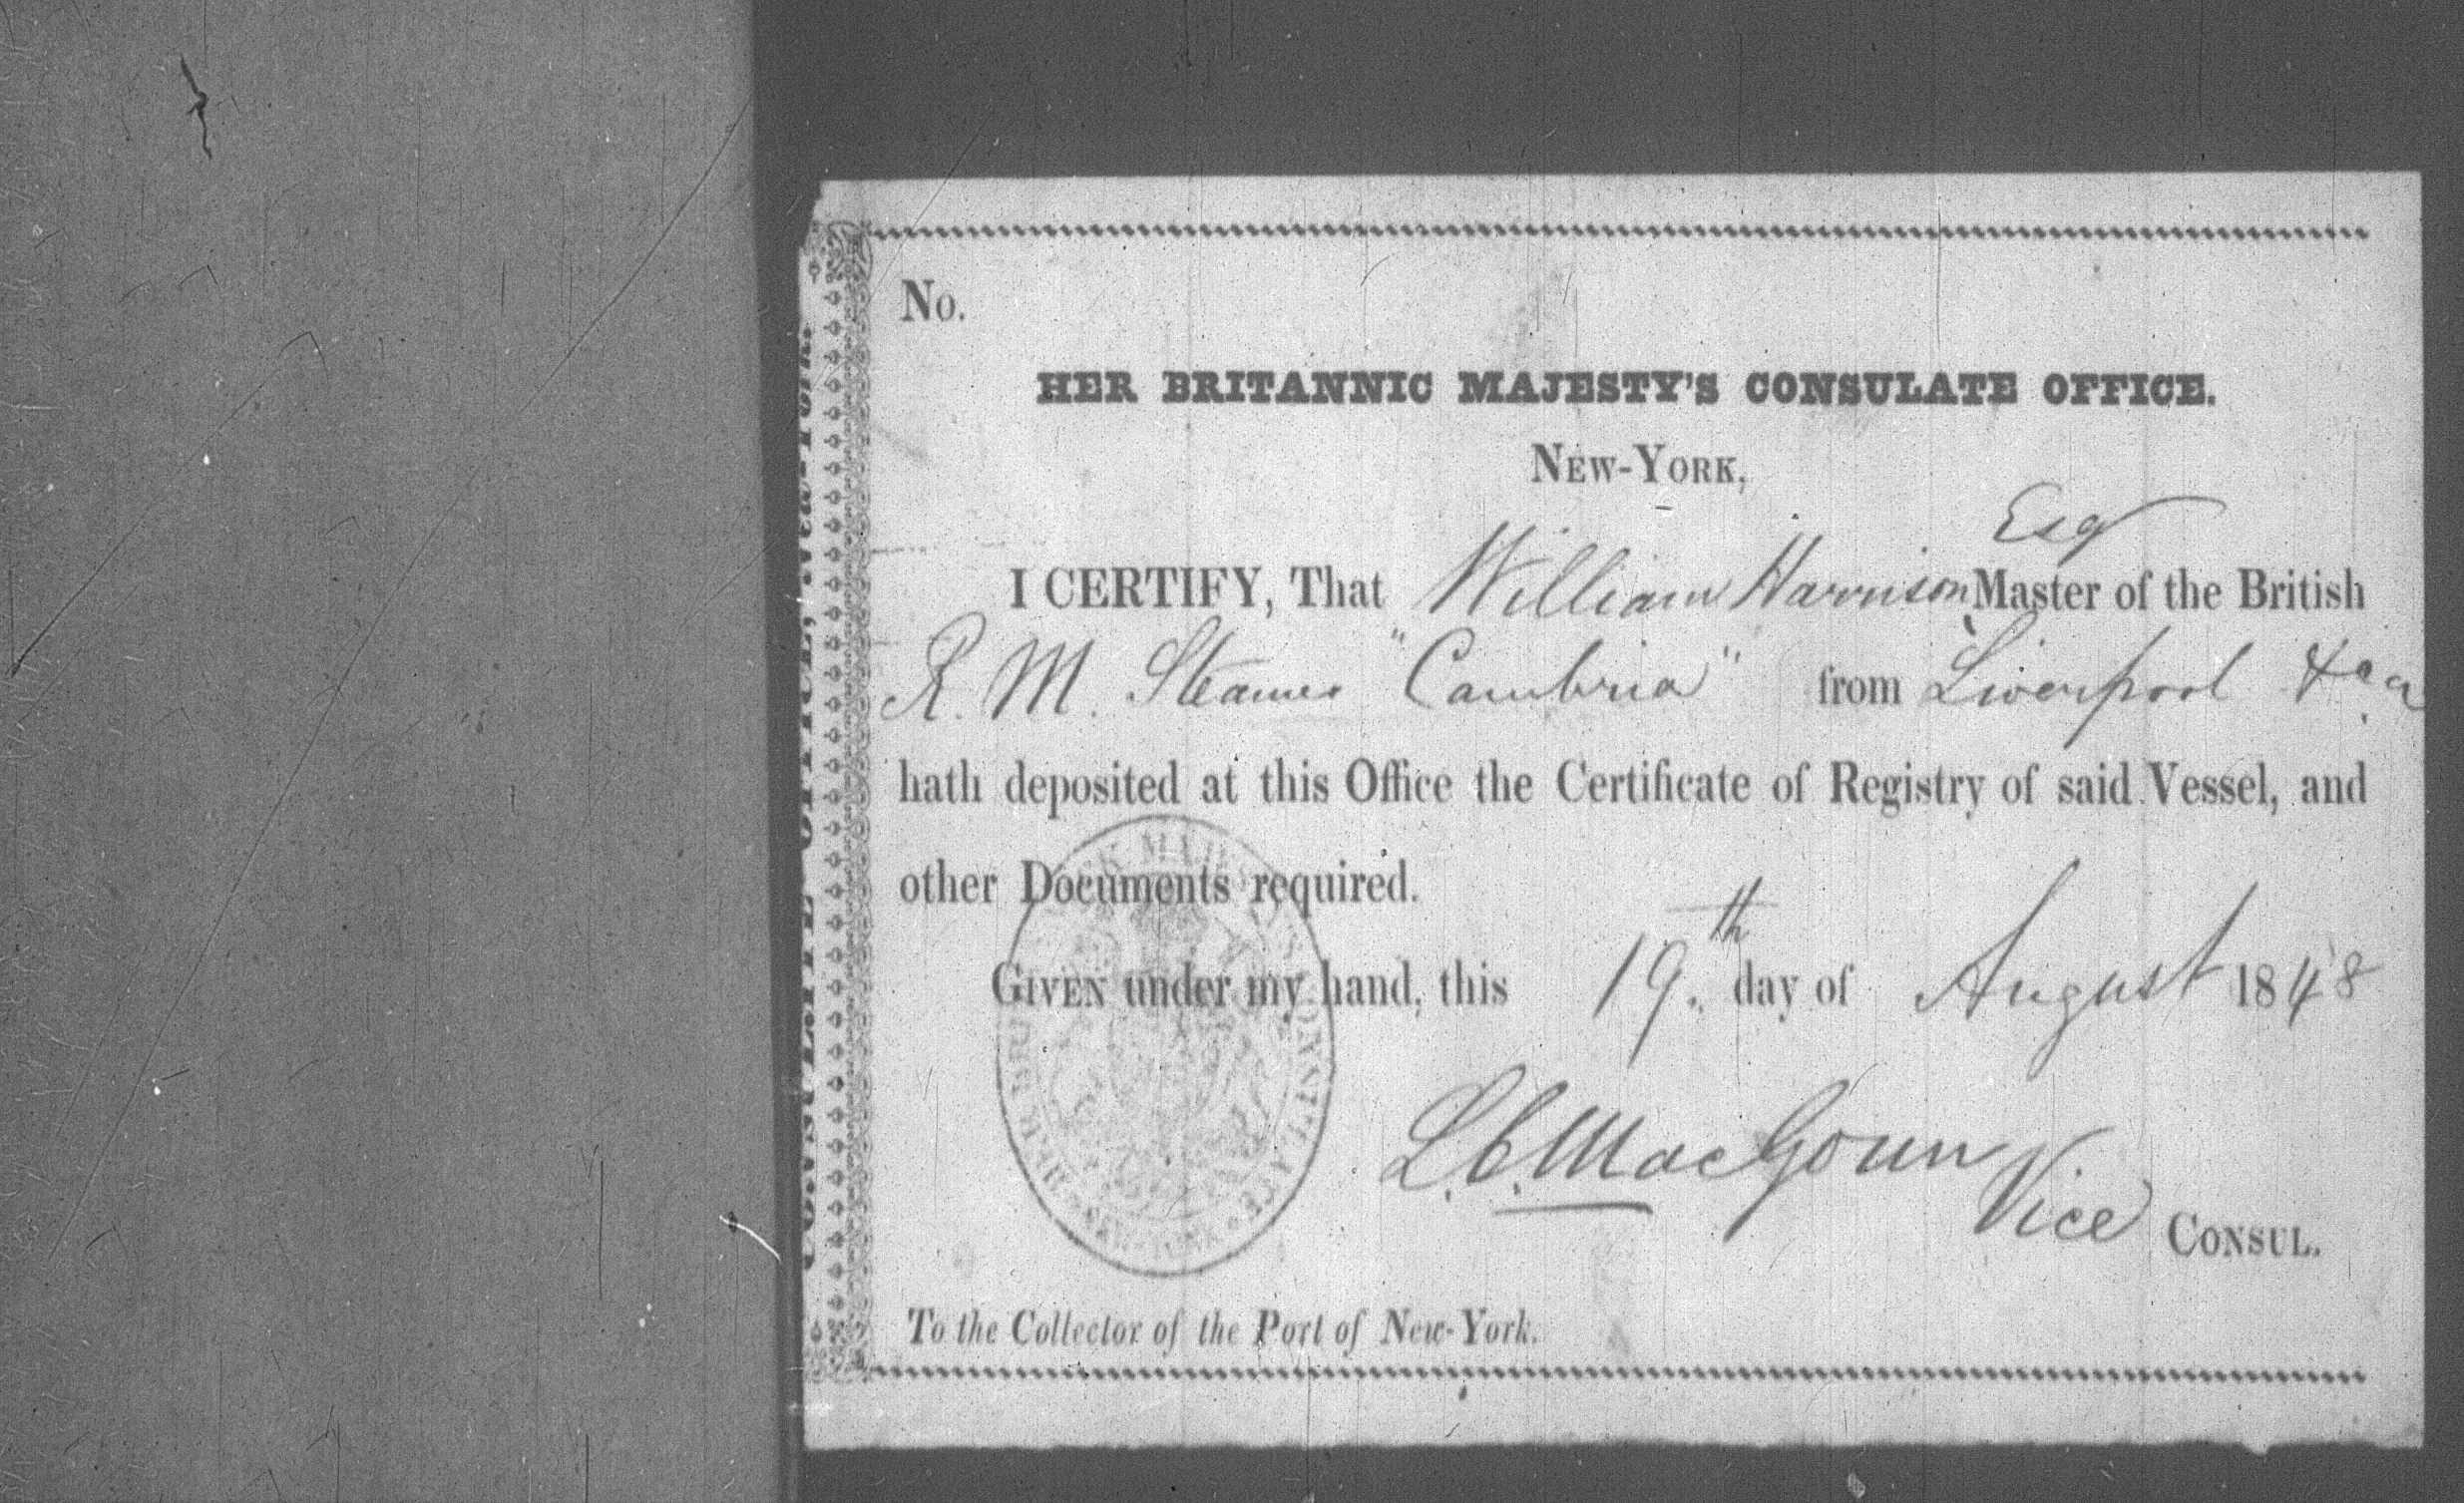 No.
HER BRITANNIC MAJESTY'S CONSULATE OFFICE.
NEW-YORK,
Esq
I CERTIFY, That William Harrison Master of the British
R. M. Steamer "Cambria" from Liverpool &ca
hath deposited at this Office the Certificate of Registry of said Vessel, and
other Documents required.
GIVEN under my hand, this 19.th day of August 1848
L. C. MacGoun
Vice CONSUL.
To the Collector of the Port of New-York.
CONSULATE OFFICE, New-York.